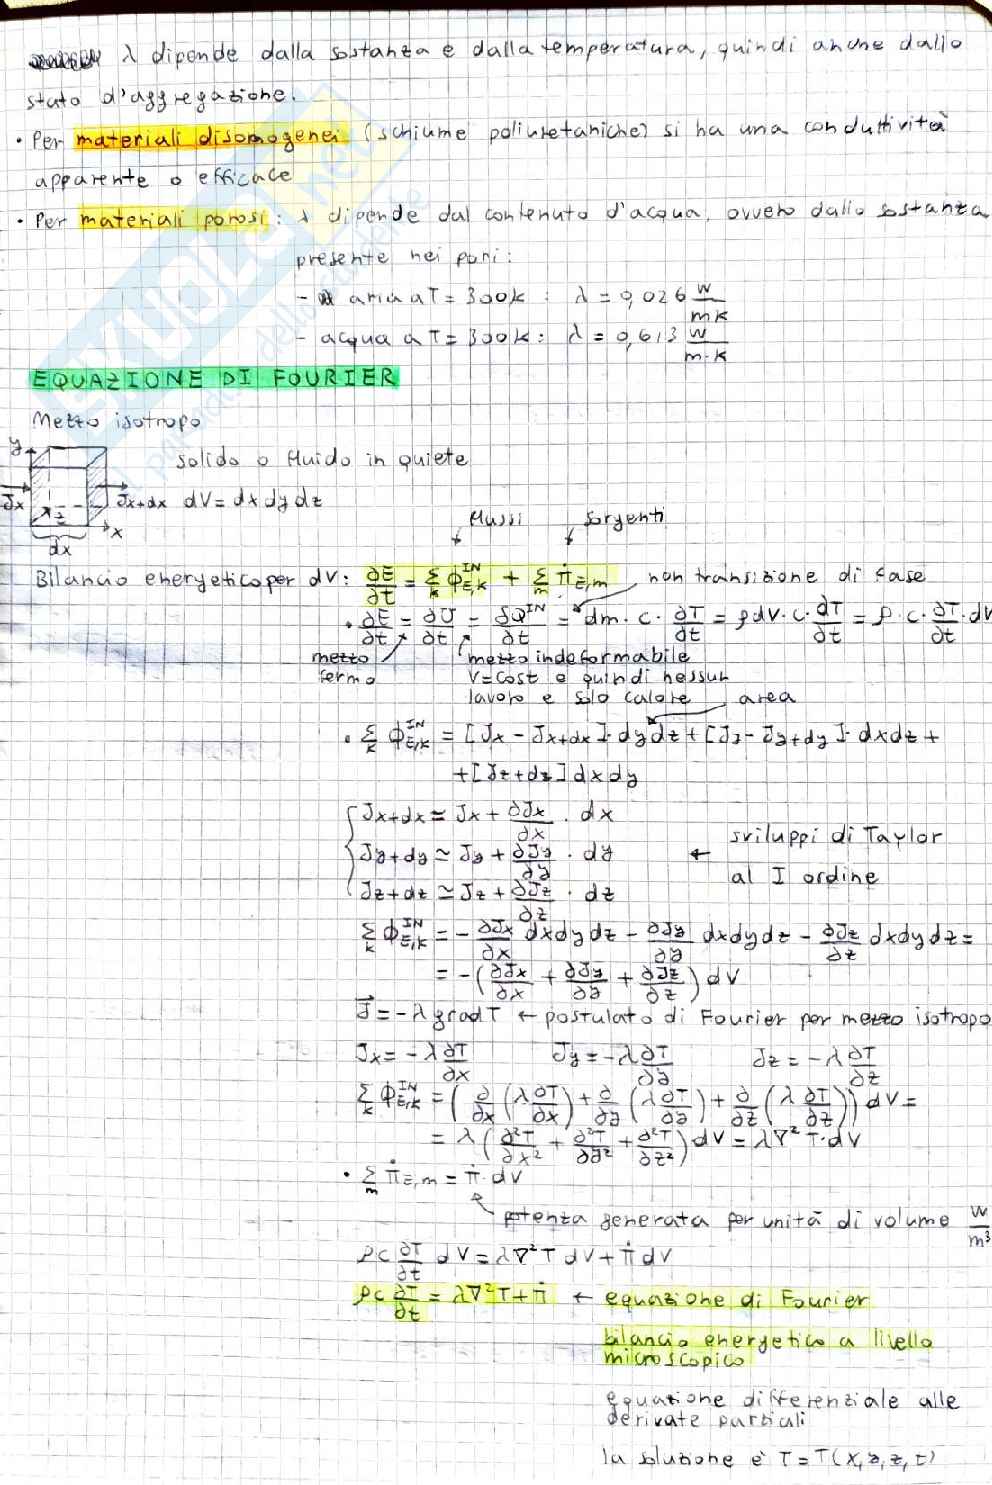 λ dipende dalla sostanza e dalla temperatura, quindi anche dallo
stato d'aggregazione.
• Per materiali disomogenei (schiume poliuretaniche) si ha una conduttività
apparente o efficace
• Per materiali porosi: λ dipende dal contenuto d'acqua, ovvero dalla sostanza
presente nei pori:
- aria a T = 300K : λ = 0,026 W/mK
- acqua a T = 300K : λ = 0,613 W/m·K
EQUAZIONE DI FOURIER
Mezzo isotropo
y
solido o fluido in quiete
Jx Jx+dx dV = dx dy dz
z x
dx
flussi sorgenti
Bilancio energetico per dV: ∂E/∂t = Σk ϕ^IN_E,k + Σm π̇E,m non transizione di fase
• ∂E/∂t = ∂U/∂t = δQ^IN/∂t = dm · c · ∂T/dt = ρ dV · c · ∂T/∂t = ρ · c · ∂T/∂t · dV
mezzo fermo
mezzo indeformabile
V=cost e quindi nessun
lavoro e solo calore area
• Σk ϕ^IN_E,k = [Jx - Jx+dx] · dy dz + [Jy - Jy+dy] · dx dz +
+ [Jz+dz] dx dy
Jx+dx ≃ Jx + ∂Jx/∂x · dx
Jy+dy ≃ Jy + ∂Jy/∂y · dy ← sviluppi di Taylor
al I ordine
Jz+dz ≃ Jz + ∂Jz/∂z · dz
Σk ϕ^IN_E,k = - ∂Jx/∂x dx dy dz - ∂Jy/∂y dx dy dz - ∂Jz/∂z dx dy dz =
= - (∂Jx/∂x + ∂Jy/∂y + ∂Jz/∂z) dV
J⃗ = -λ grad T ← postulato di Fourier per mezzo isotropo
Jx = -λ ∂T/∂x Jy = -λ ∂T/∂y Jz = -λ ∂T/∂z
Σk ϕ^IN_E,k = (∂/∂x (λ ∂T/∂x) + ∂/∂y (λ ∂T/∂y) + ∂/∂z (λ ∂T/∂z)) dV =
= λ (∂²T/∂x² + ∂²T/∂y² + ∂²T/∂z²) dV = λ∇²T · dV
• Σm π̇E,m = π̇ · dV
potenza generata per unità di volume W/m³
ρc ∂T/∂t dV = λ∇²T dV + π̇ dV
ρc ∂T/∂t = λ∇²T + π̇ ← equazione di Fourier
bilancio energetico a livello
microscopico
equazione differenziale alle
derivate parziali
la soluzione è T = T(x, y, z, t)